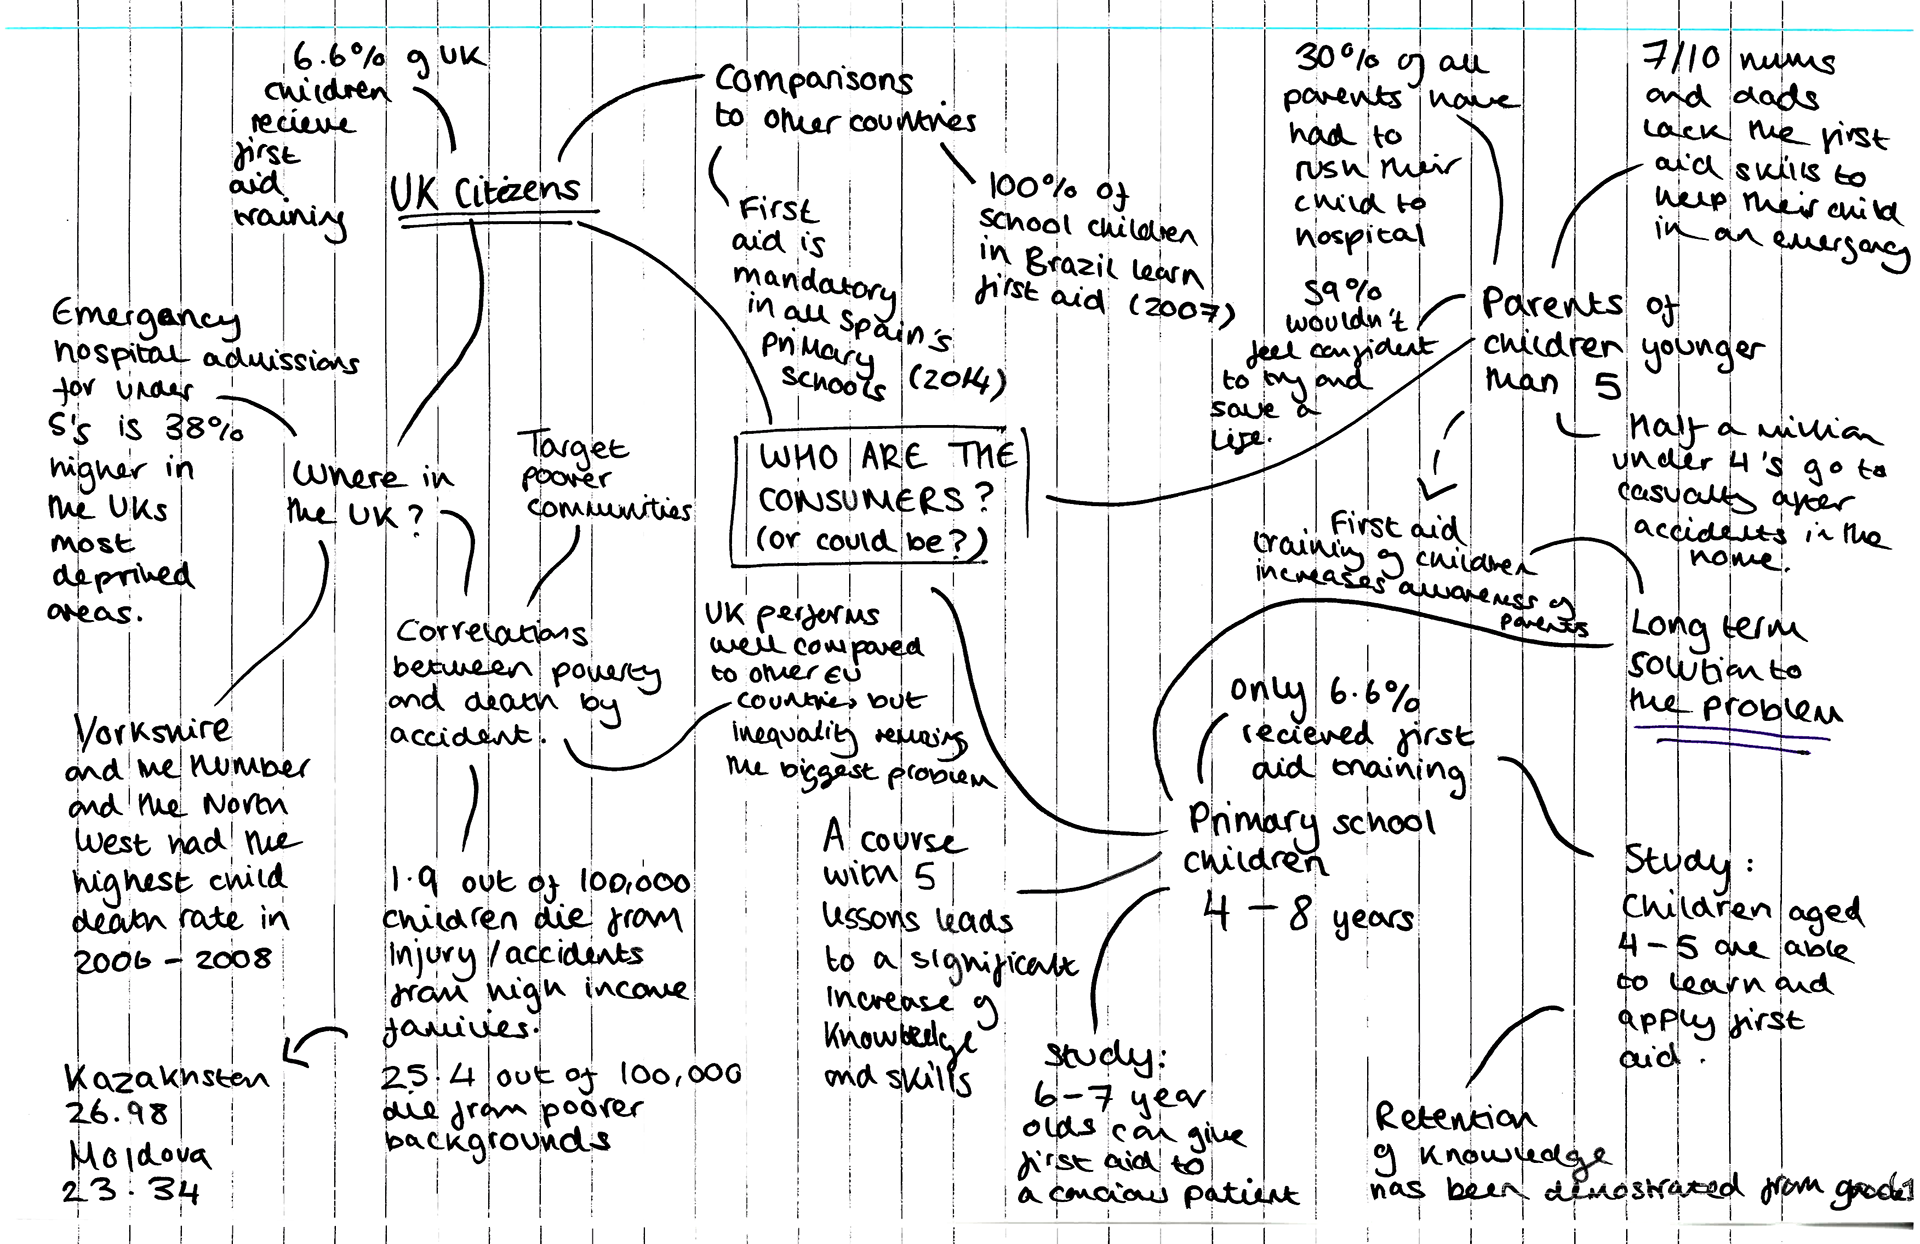 6.6% of UK
children
recieve
first
aid
training
UK Citizens
Comparisons
to other countries
First
aid is
mandatory
in all Spain's
primary
schools (2014)
100% of
school children
in Brazil learn
first aid (2007)
30% of all
parents have
had to
rush their
child to
hospital
7/10 mums
and dads
lack the first
aid skills to
help their child
in an emergency
59%
wouldn't
feel confident
to try and
save a
life.
Parents of
children younger
than 5
Half a million
under 4's go to
casualty after
accidents in the
home.
Emergency
hospital admissions
for under
5's is 38%
higher in
the UKs
most
deprived
areas.
Where in
the UK?
Target
poorer
communities
WHO ARE THE
CONSUMERS?
(or could be?)
First aid
training of children
increases awareness of
parents
Long term
solution to
the problem
Correlations
between poverty
and death by
accident.
UK performs
well compared
to other EU
countries but
inequality remains
the biggest problem
Yorkshire
and the Humber
and the North
West had the
highest child
death rate in
2006 - 2008
only 6.6%
recieved first
aid training
Primary school
children
4 - 8 years
A course
with 5
lessons leads
to a significant
increase of
knowledge
and skills
1.9 out of 100,000
children die from
injury/accidents
from high income
families.
25.4 out of 100,000
die from poorer
backgrounds
Kazakhstan
26.98
Moldova
23.34
Study:
6-7 year
olds can give
first aid to
a concious patient
Study:
Children aged
4-5 are able
to learn and
apply first
aid.
Retention
of knowledge
has been demostrated from grade 1